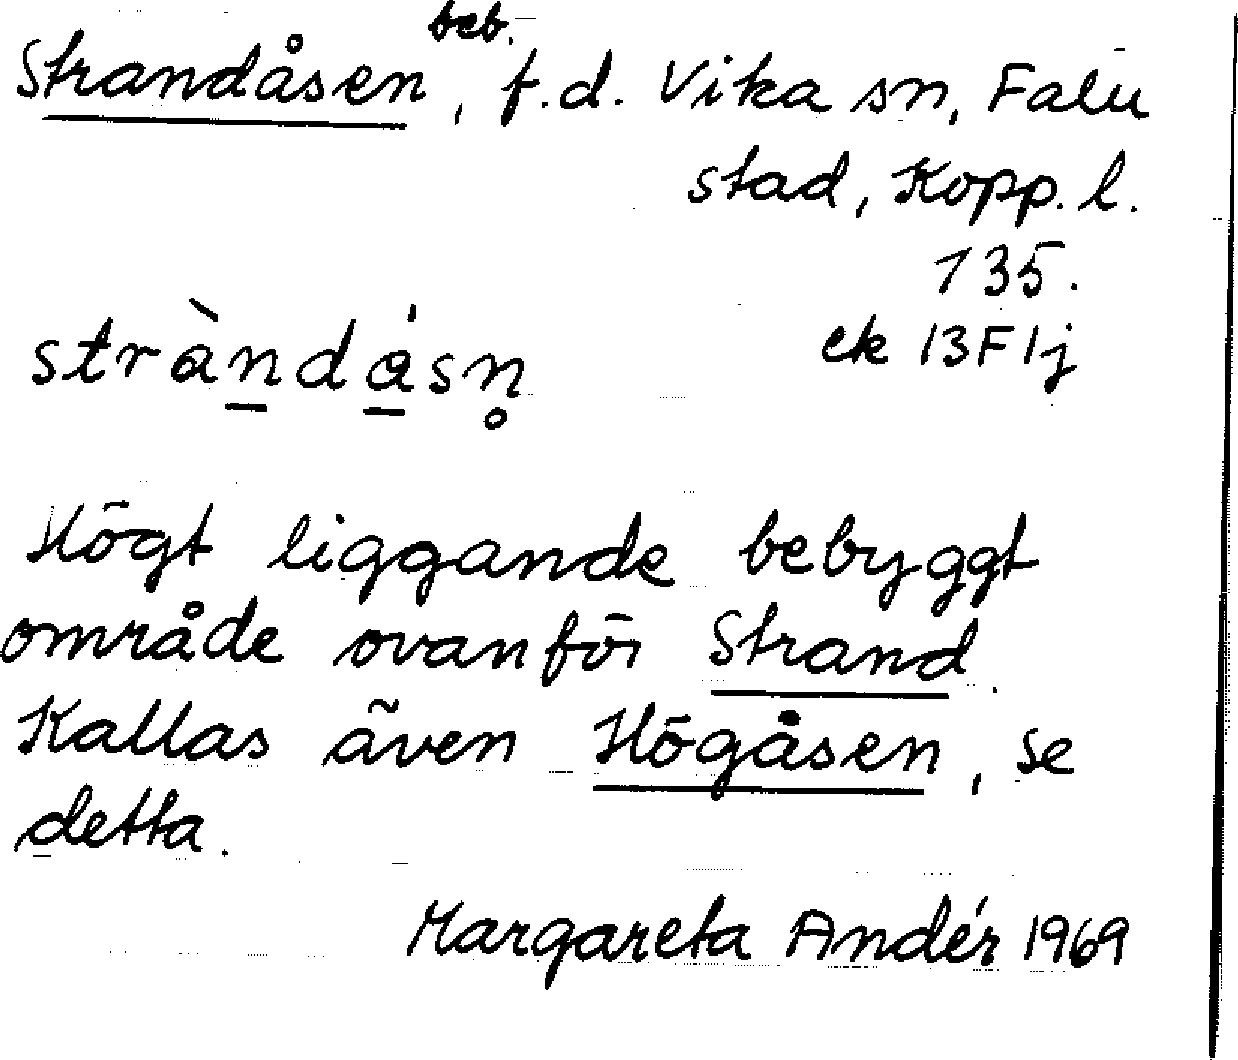 Strandåsen beb., f.d. Vika sn, Falu
stad, Kopp. l.
135.
ek 13F1j
stràndåsn̥
Högt liggande bebyggt
område ovanför Strand.
Kallas även Högåsen, se
detta.
Margareta Andér 1969